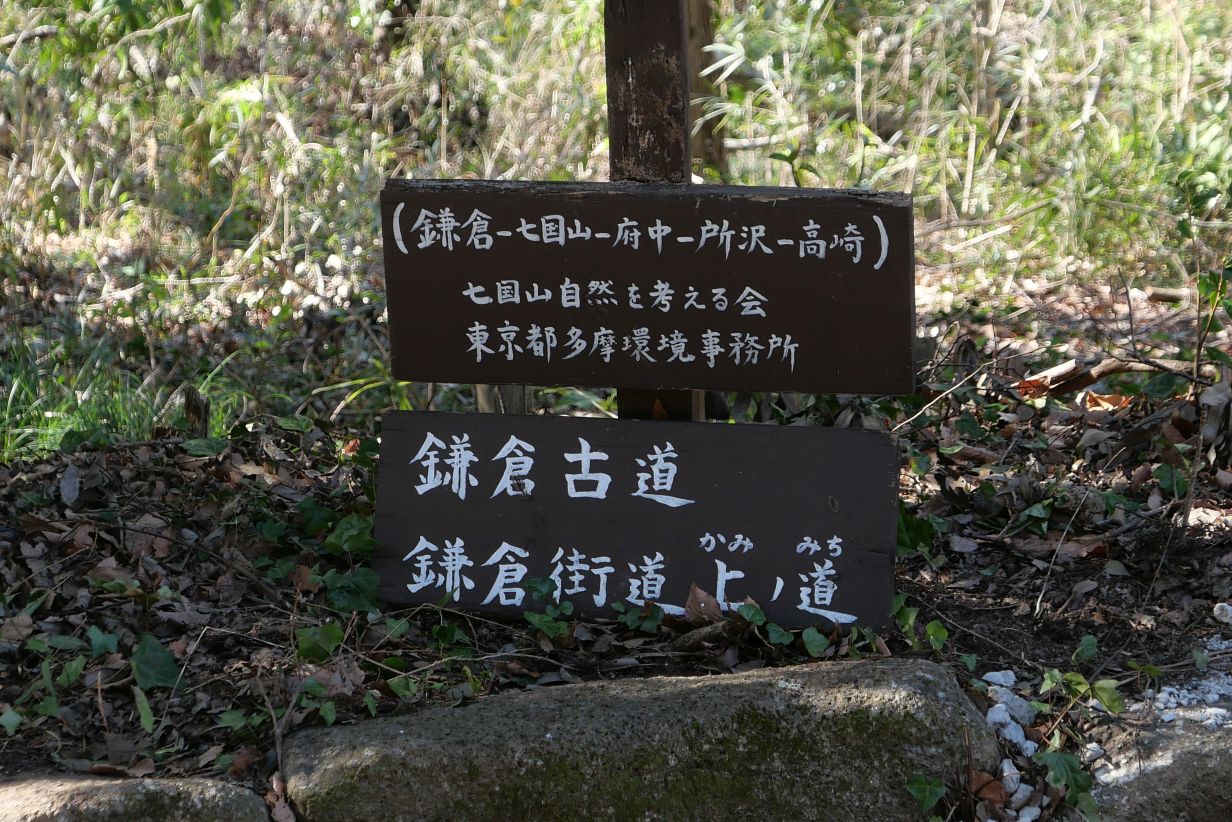 (鎌倉-七国山-府中-所沢-高崎)
七国山自然を考える会
東京都多摩環境事務所
鎌倉古道
かみ みち
鎌倉街道 上ノ道